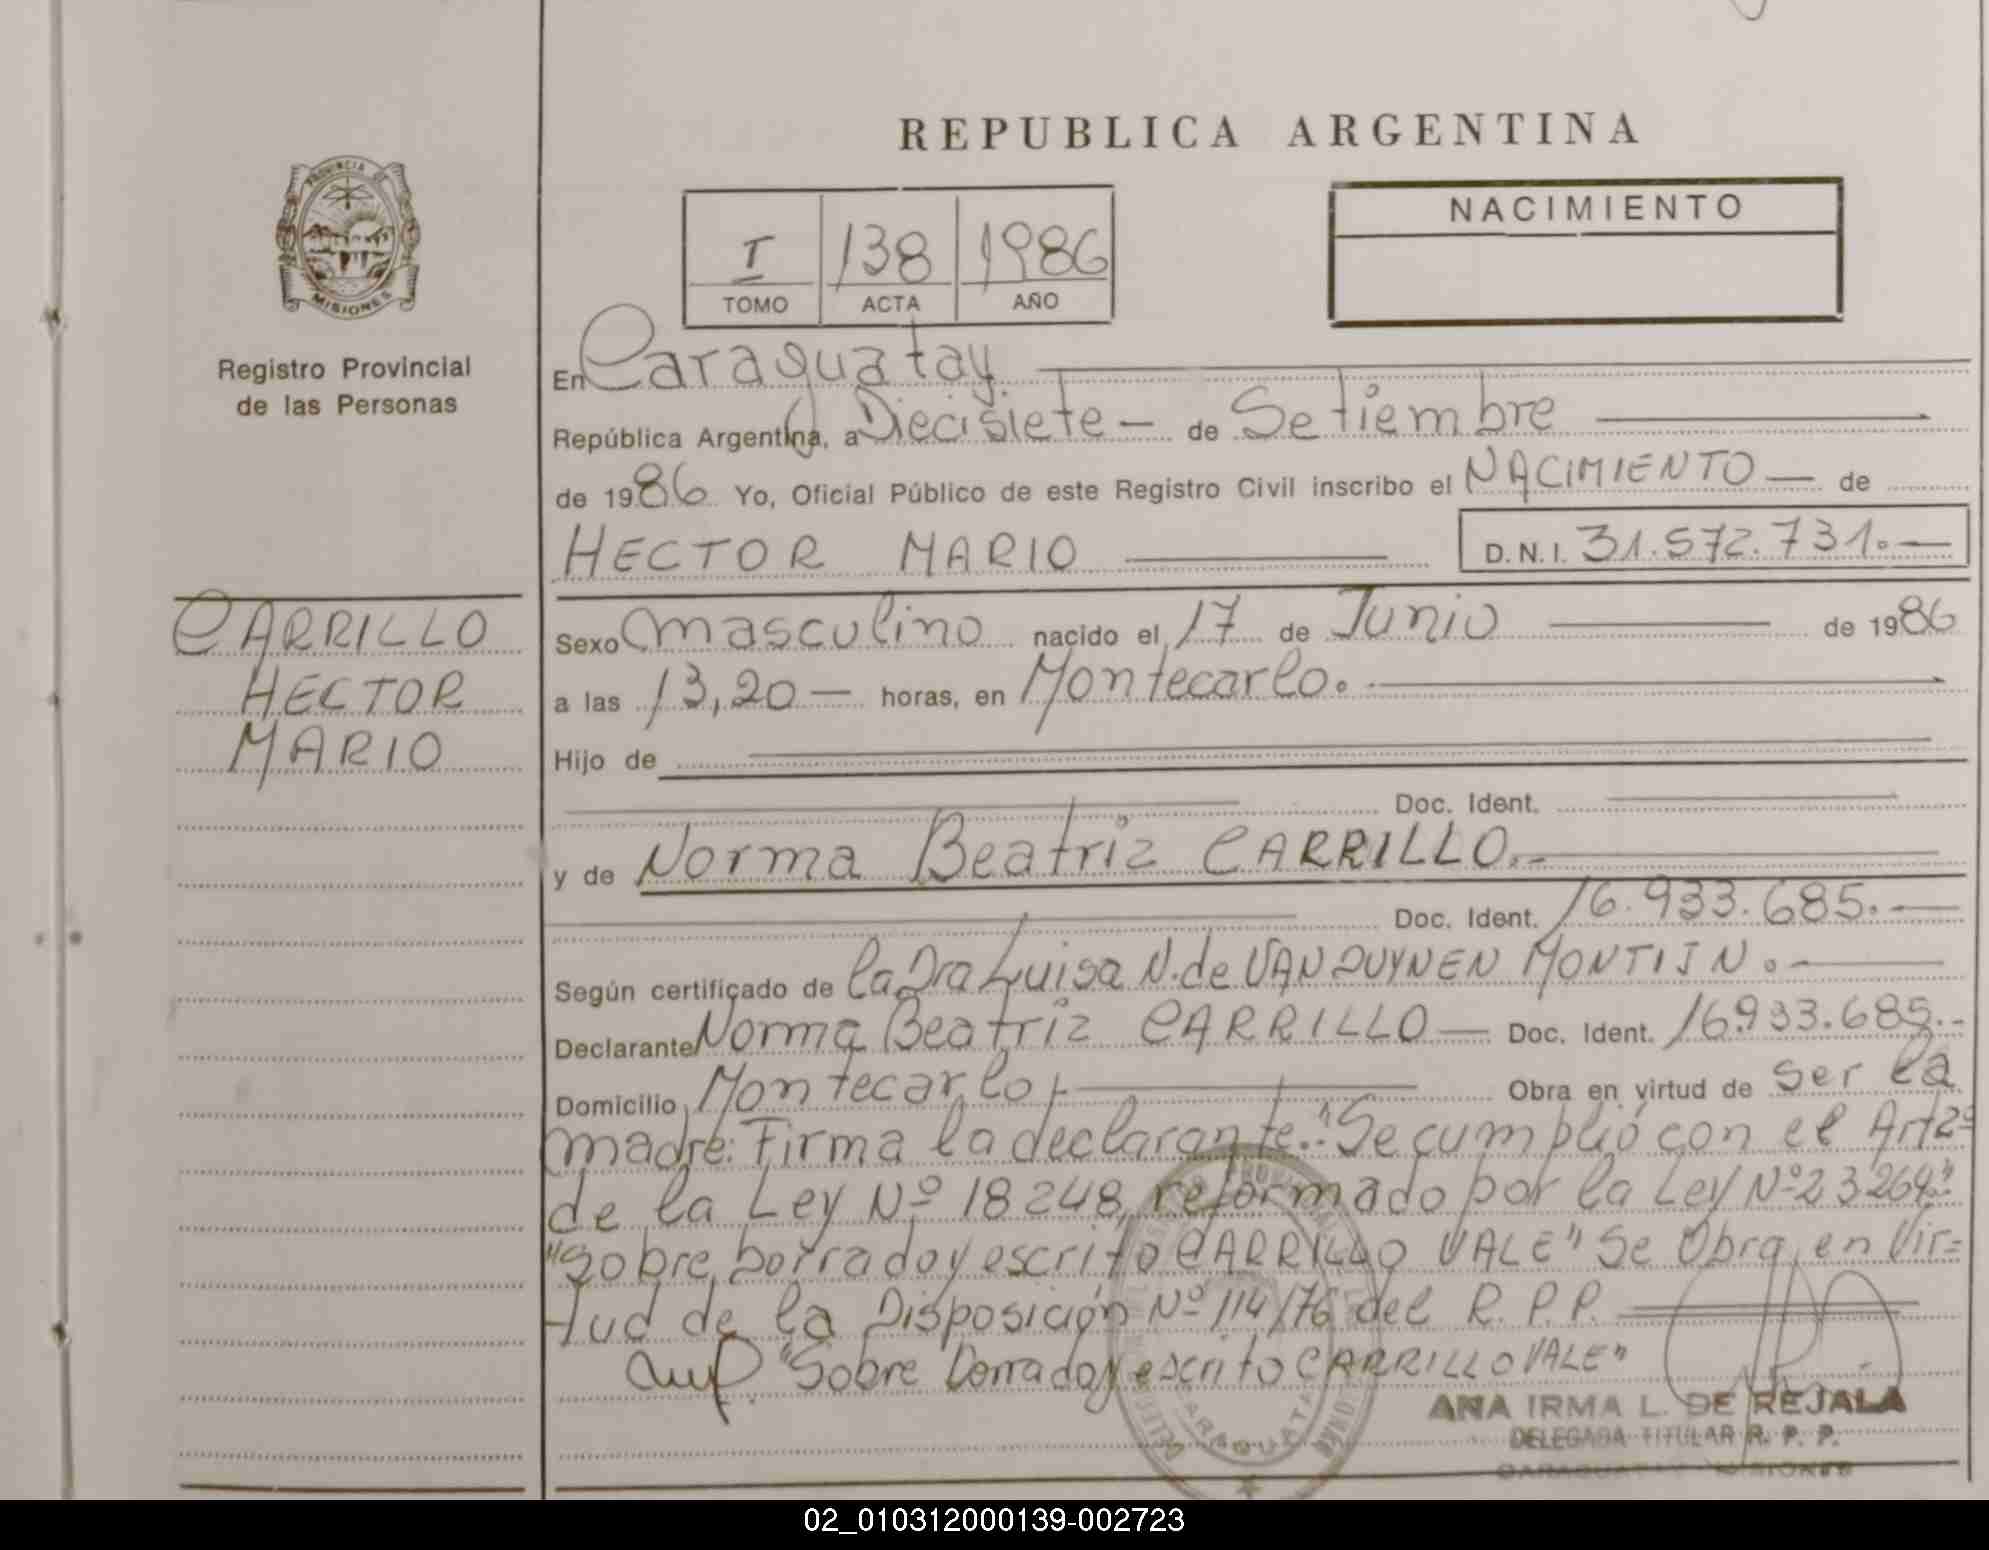 REPUBLICA ARGENTINA
PROVINCIA DE
MISIONES
Registro Provincial
de las Personas
I 138 1986
TOMO ACTA AÑO
NACIMIENTO
En Caraguatay.
República Argentina, a Diecisiete — de Setiembre
de 1986 Yo, Oficial Público de este Registro Civil inscribo el NACIMIENTO — de
HECTOR MARIO D.N.I. 31.572.731.—
CARRILLO
HECTOR
MARIO
Sexo masculino nacido el 17 de Junio de 1986
a las 13,20 — horas, en Montecarlo.
Hijo de
Doc. Ident.
y de Norma Beatriz CARRILLO.-
Doc. Ident. 16.933.685.—
Según certificado de la Dra Luisa N. de VAN DUYNEN MONTIJN.-
Declarante Norma Beatriz CARRILLO — Doc. Ident. 16.933.685.-
Domicilio Montecarlo Obra en virtud de ser la
madre: Firma la declarante.. "Se cumplió con el Art 2º
de la Ley Nº 18248, reformado por la Ley Nº 23264"
"Sobre borrado y escrito CARRILLO VALE" Se Obra en Vir=
tud de la Disposición Nº 114/76 del R. P. P.
"Sobre borrado y escrito CARRILLO VALE"
ANA IRMA L. DE REJALA
DELEGADA TITULAR R. P. P.
CARAGUATAY MISIONES
02_010312000139-002723